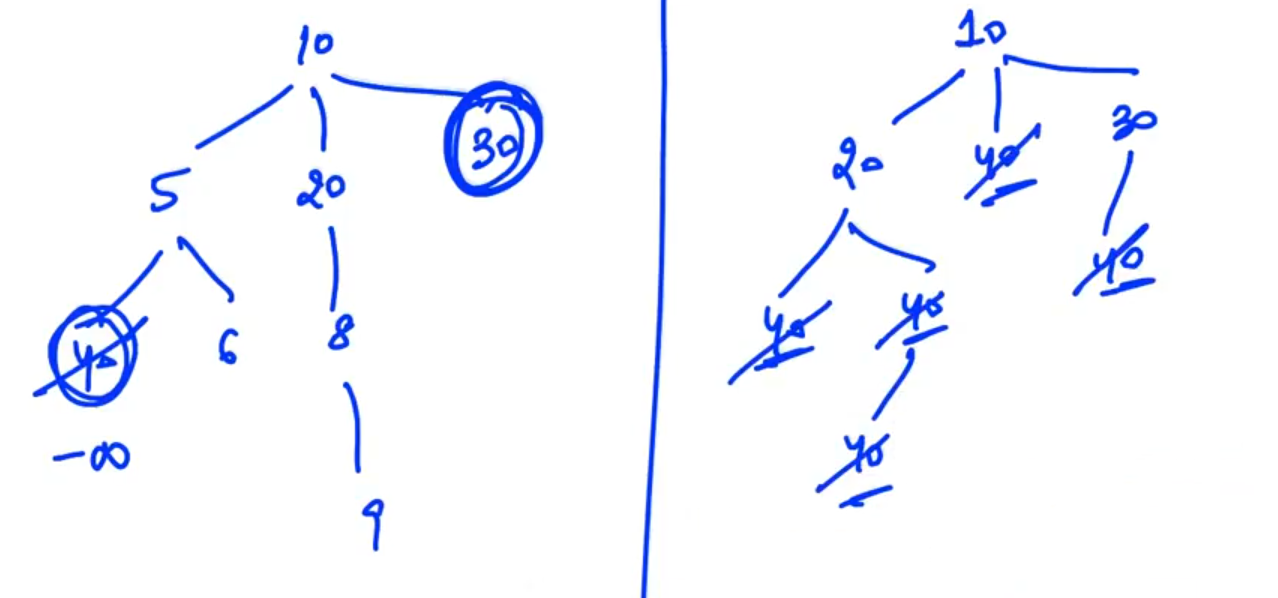 10
5 20 30
40 6 8
-∞
9
10
20 40 30
40 40 40
40